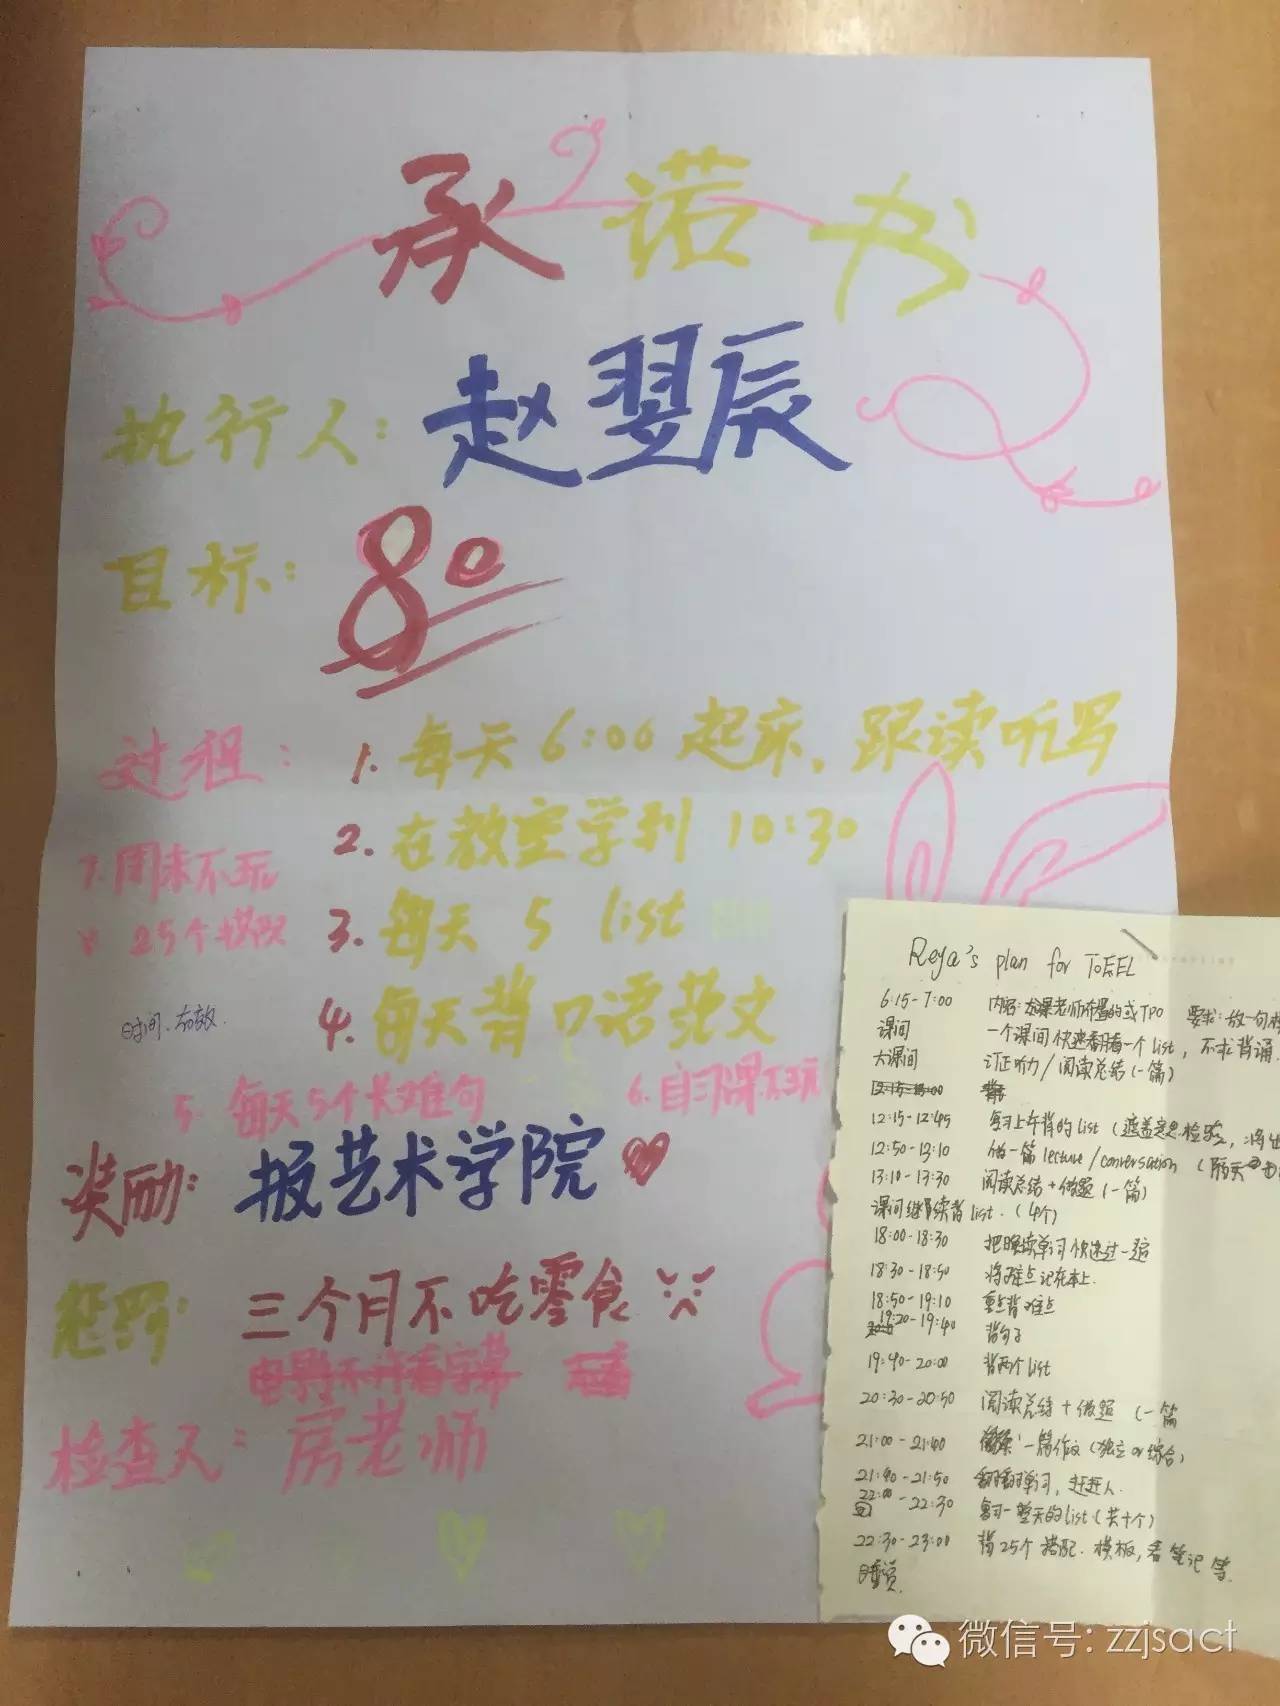 承诺书
执行人：赵翌辰
目标：80
过程：1. 每天6:00起床，跟读听写
2. 在教室学到10:30
3. 每天5 list
4. 每天背口语范文
5. 每天5个长难句
6. 自习课不玩
7. 周末不玩
8 25个搭配
时间、有效.
奖励：报艺术学院
惩罚：三个月不吃零食
电影不许看字幕
检查人：房老师
Reya's plan for TOEFL
6:15-7:00 内容：太课老师布置的或TPO 要求：放一句
课间 一个课间快速翻看一个list，不求背诵.
大课间 订正听力/阅读总结(一篇)
12:15-12:45 复习上午背的list（遮盖意思检验，将
12:50-13:10 做一篇lecture/conversation（隔天
13:10-13:30 阅读总结+做题（一篇）
课间继续背list.（4个）
18:00-18:30 把晚读单词快速过一遍
18:30-18:50 将难点记在本上.
18:50-19:10 重点背难点
19:20-19:40 背句子
19:40-20:00 背两个list
20:30-20:50 阅读总结+做题（一篇
21:00-21:40 一篇作文（独立or综合）
21:40-21:50 翻翻单词，赶赶人.
22:00-22:30 复习一整天的list（共十个）
22:30-23:00 背25个搭配.模板，看笔记等.
睡觉.
微信号: zzjsact